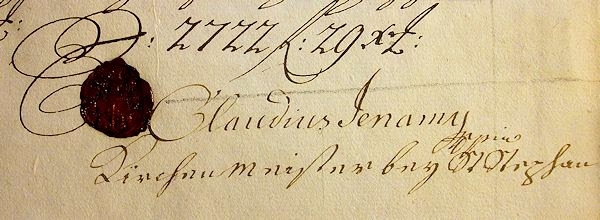 : 2722 f: 29 xr:
Claudius Jenamy
Kirchenmeister bey St Stephan